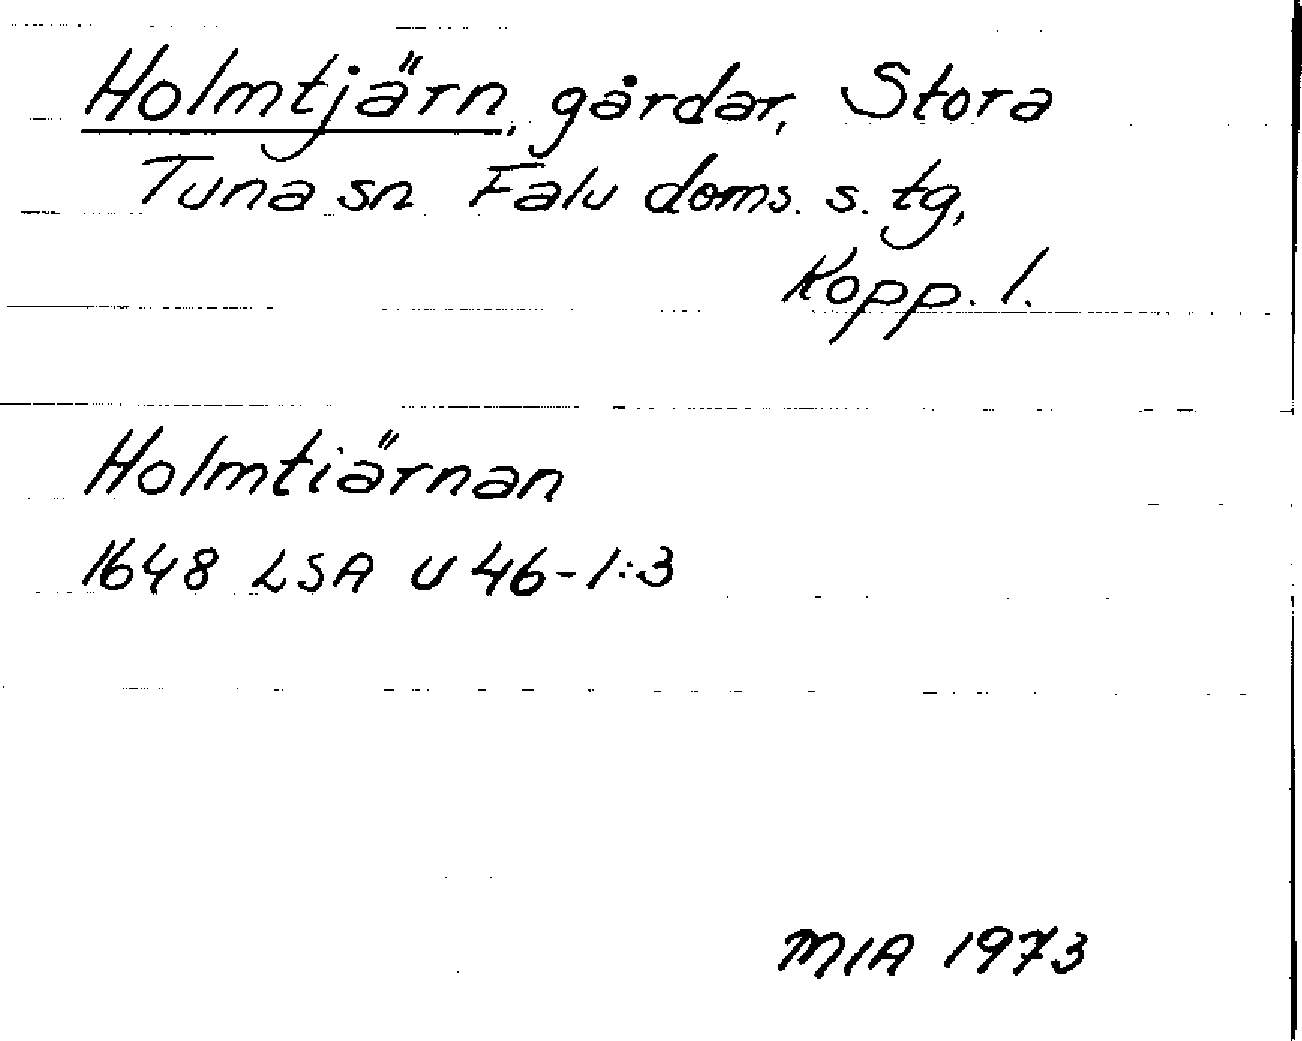 Holmtjärn, gårdar, Stora
Tuna sn Falu doms. s. tg,
Kopp. l.
Holmtiärnan
1648 LSA U 46-1:3
MIA 1973